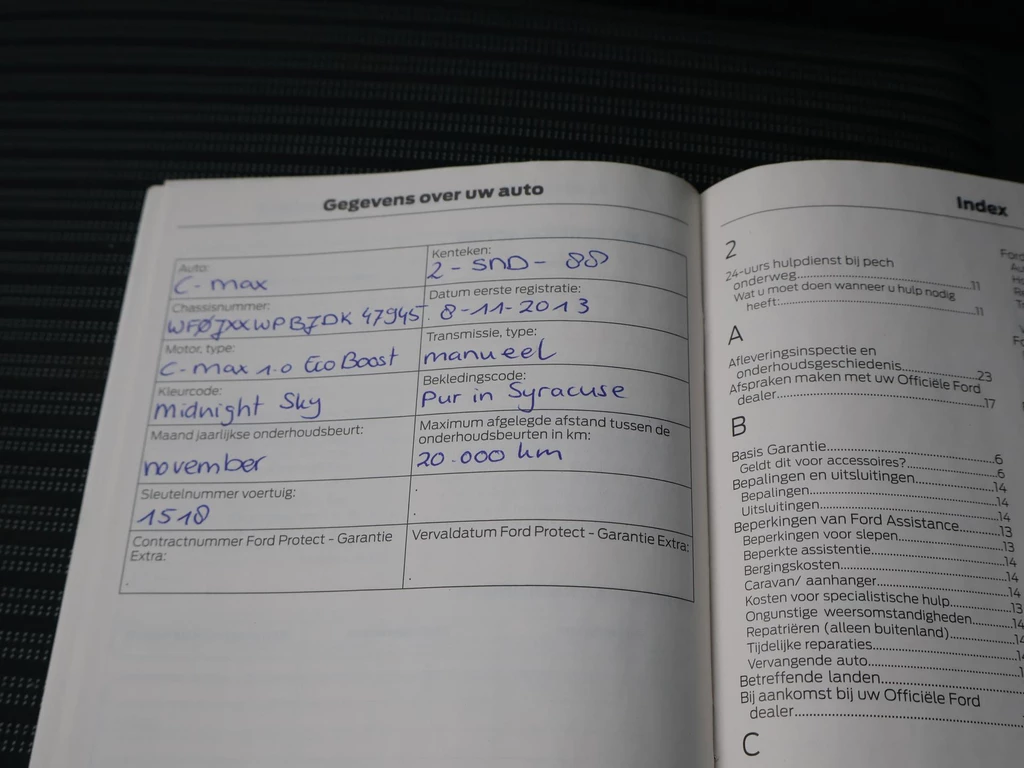 Gegevens over uw auto
Auto:
C-max
Kenteken:
2-SND-88
Chassisnummer:
WF0JXXWPBJDK47945
Datum eerste registratie:
8-11-2013
Motor, type:
C-max 1.0 EcoBoost
Transmissie, type:
manueel
Kleurcode:
Midnight Sky
Bekledingscode:
Pur in Syracuse
Maand jaarlijkse onderhoudsbeurt:
november
Maximum afgelegde afstand tussen de
onderhoudsbeurten in km:
20.000 km
Sleutelnummer voertuig:
1518
Contractnummer Ford Protect - Garantie
Extra:
Vervaldatum Ford Protect - Garantie Extra:
Index
2
24-uurs hulpdienst bij pech
onderweg....................11
Wat u moet doen wanneer u hulp nodig
heeft:....................11
A
Afleveringsinspectie en
onderhoudsgeschiedenis....................23
Afspraken maken met uw Officiële Ford
dealer....................17
B
Basis Garantie....................6
Geldt dit voor accessoires?....................6
Bepalingen en uitsluitingen....................14
Bepalingen....................14
Uitsluitingen....................14
Beperkingen van Ford Assistance....................13
Beperkingen voor slepen....................13
Beperkte assistentie....................14
Bergingskosten....................14
Caravan/ aanhanger....................14
Kosten voor specialistische hulp....................13
Ongunstige weersomstandigheden....................14
Repatriëren (alleen buitenland)....................14
Tijdelijke reparaties....................
Vervangende auto....................
Betreffende landen....................
Bij aankomst bij uw Officiële Ford
dealer....................
C